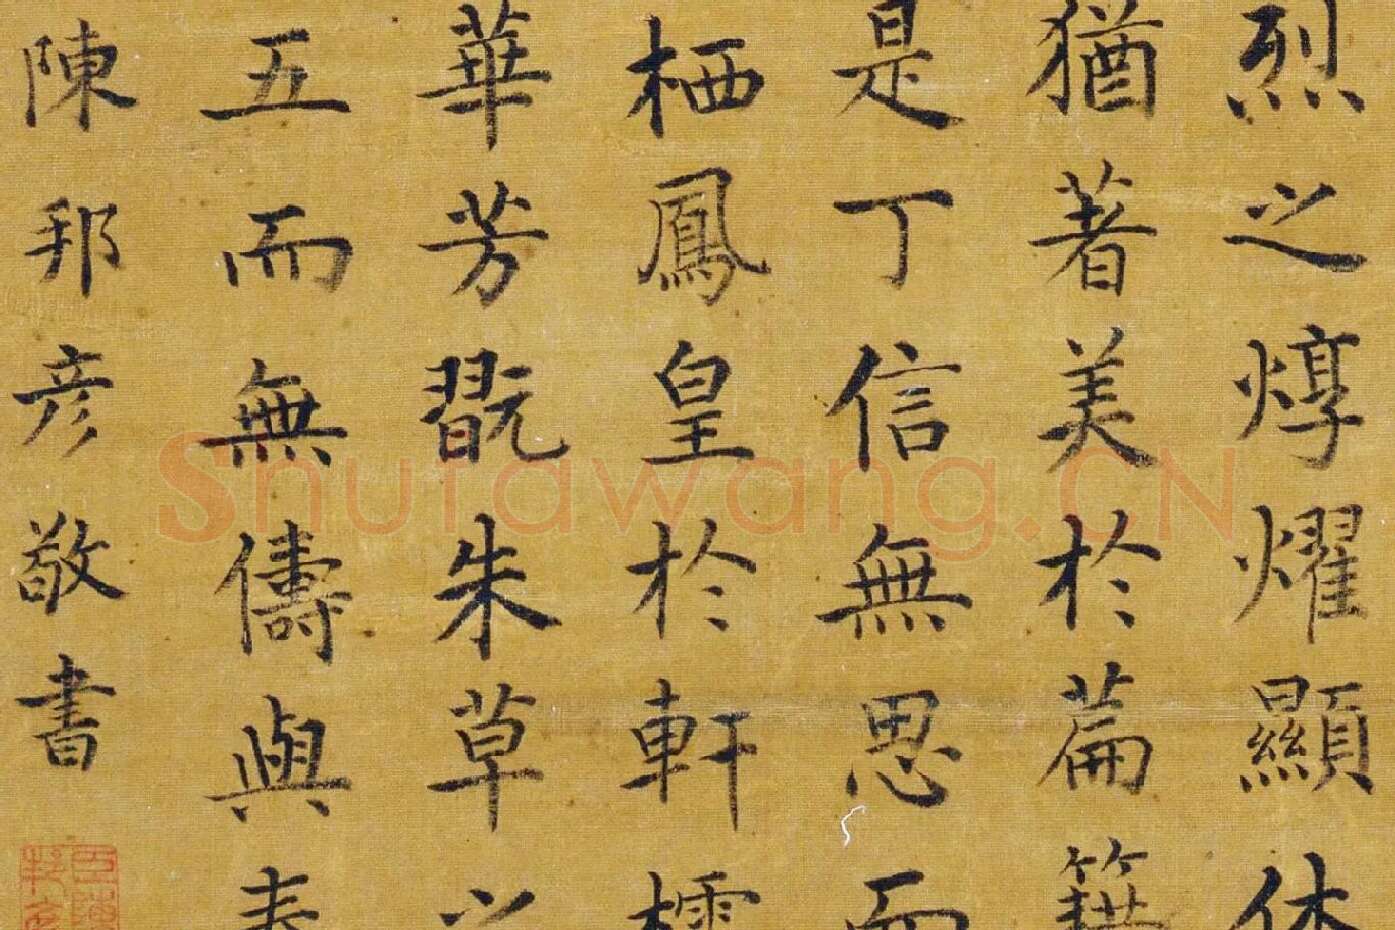 烈之焞耀顯休
猶著美於萹籍
是丁信無思而
栖鳳皇於軒櫺
華芳翫朱草以
五而無儔與春
陳邦彦敬書
Shufawang.CN